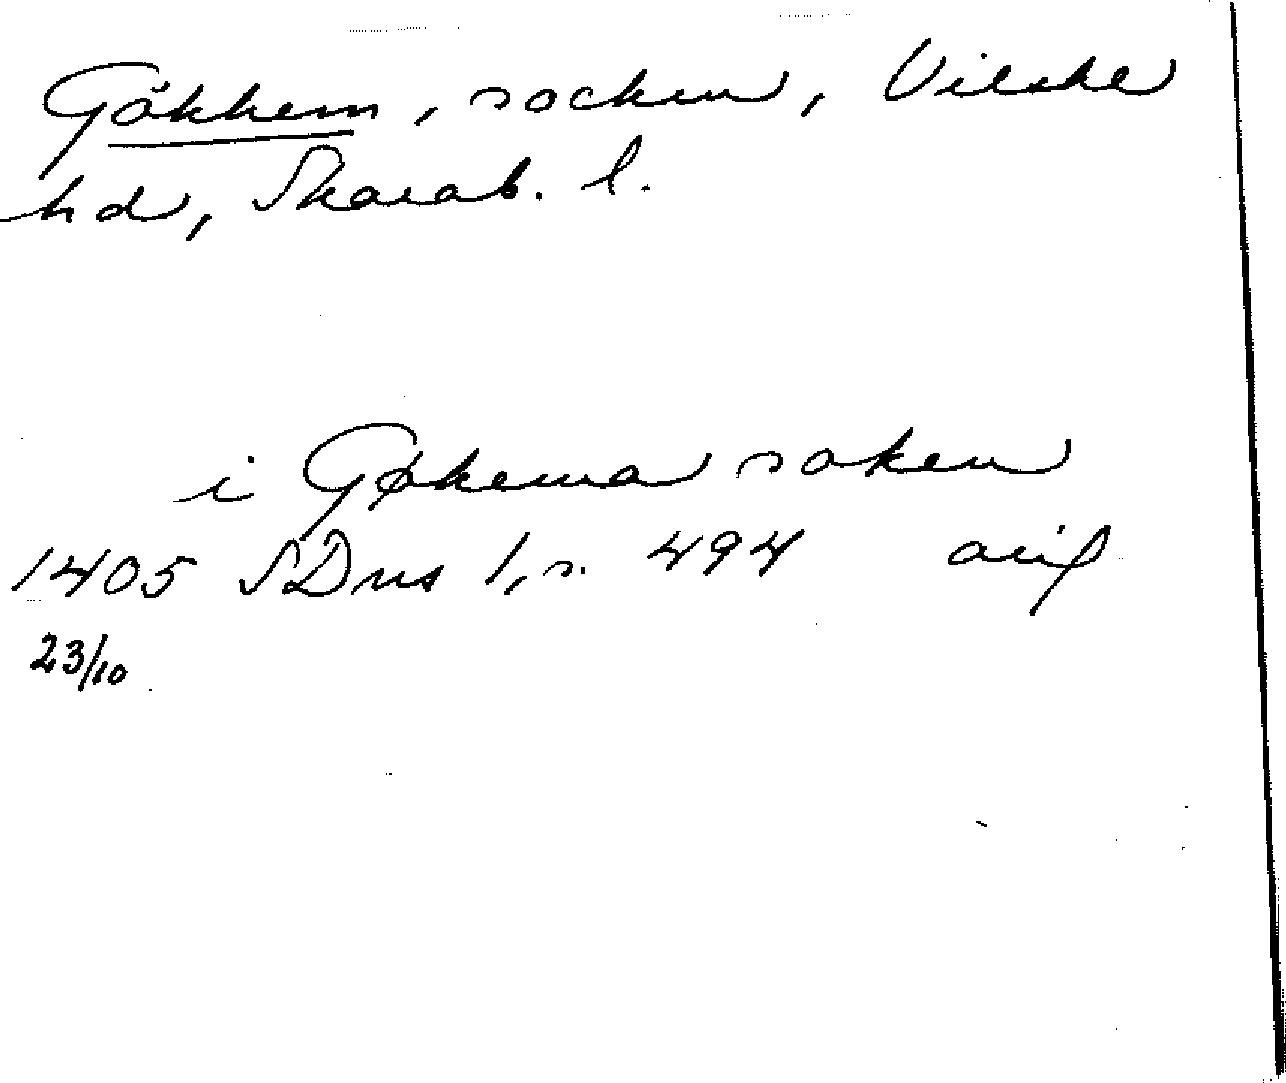 Gökhem, socken, Vilske
hd, Skarab. l.
i Gøkema soken
1405 SDns 1, s. 494 avs
23/10